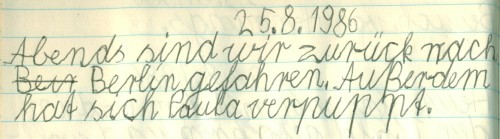 25.8.1986
Abends sind wir zurück nach
Berlin gefahren. Außerdem
hat sich Paula verpuppt.